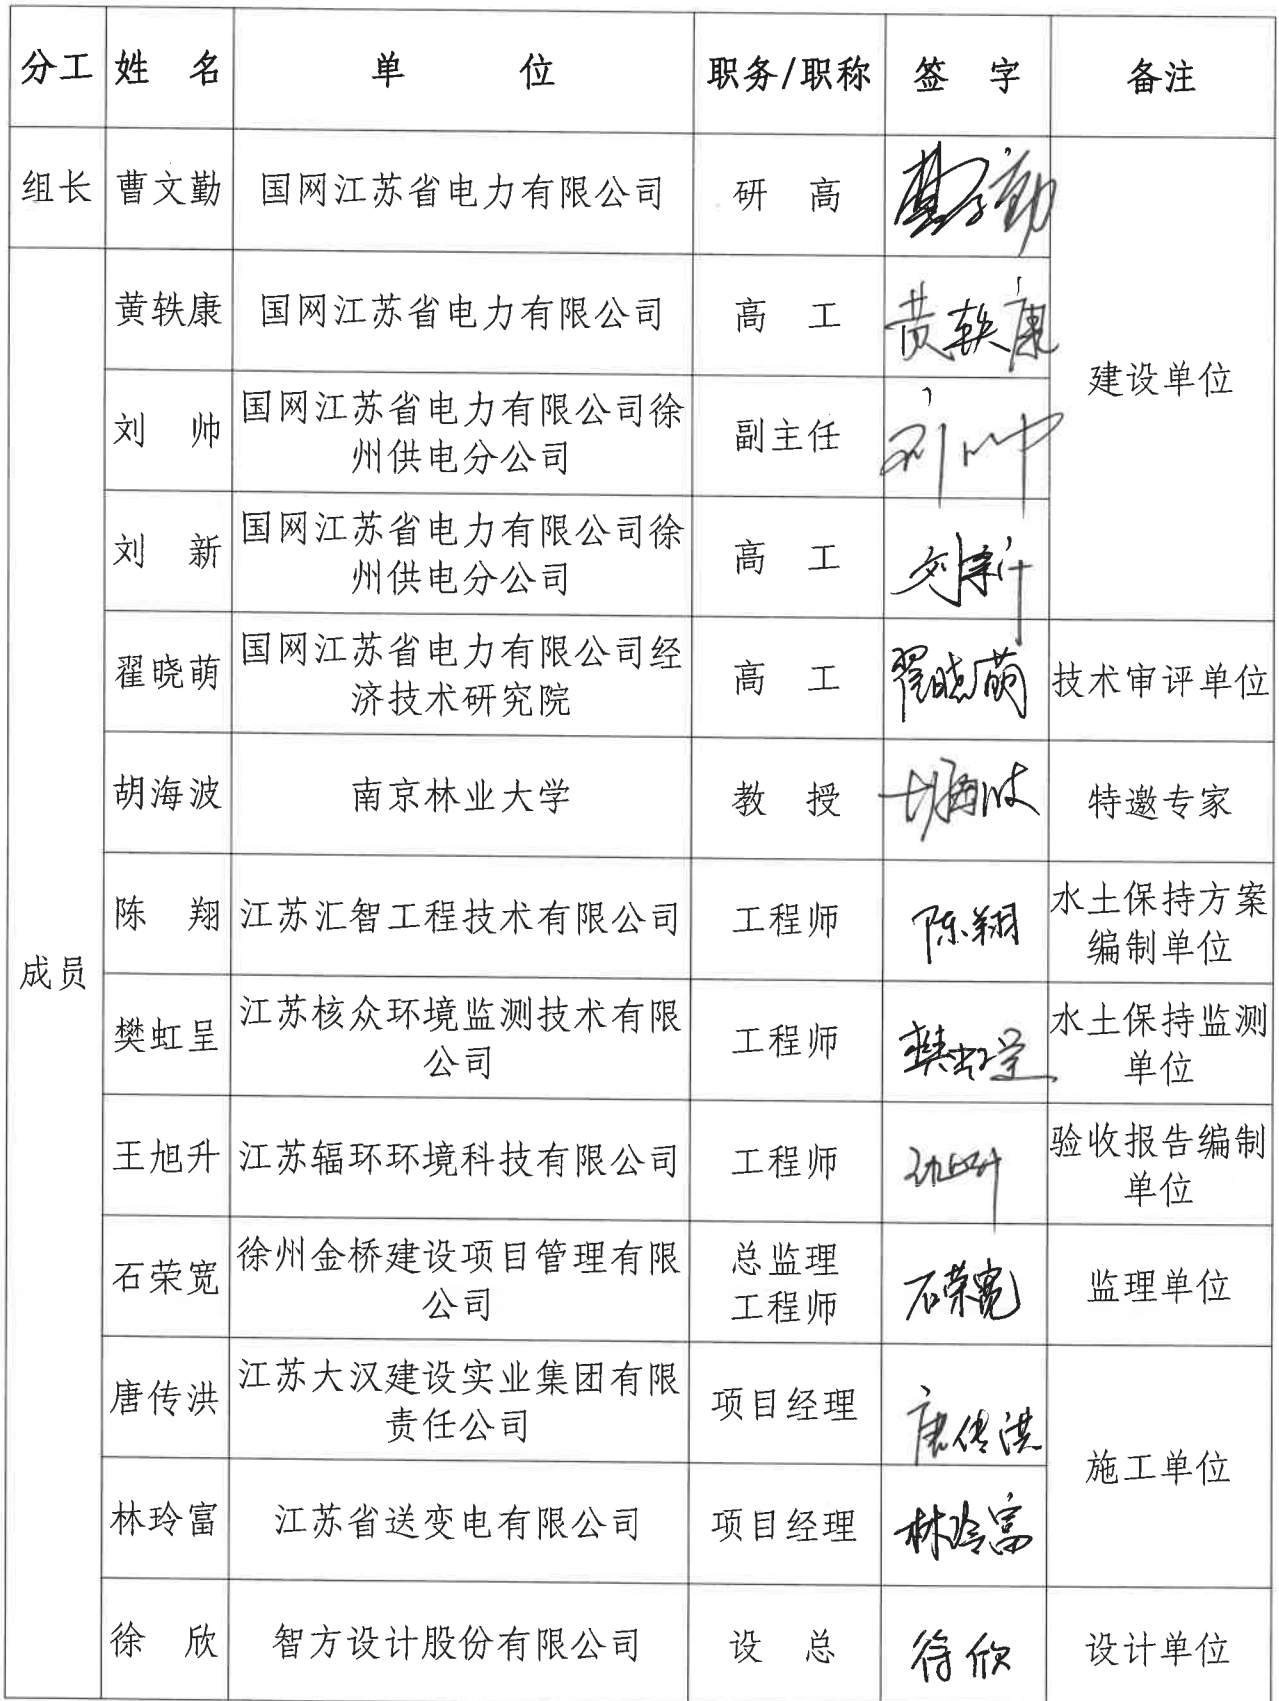 分工 姓 名 单 位 职务/职称 签 字 备注
组长 曹文勤 国网江苏省电力有限公司 研 高
黄轶康 国网江苏省电力有限公司 高 工 黄轶康
建设单位
刘 帅 国网江苏省电力有限公司徐
州供电分公司 副主任 刘帅
刘 新 国网江苏省电力有限公司徐
州供电分公司 高 工 刘新
翟晓萌 国网江苏省电力有限公司经
济技术研究院 高 工 翟晓萌 技术审评单位
胡海波 南京林业大学 教 授 胡海波 特邀专家
陈 翔 江苏汇智工程技术有限公司 工程师 陈翔 水土保持方案
编制单位
成员
樊虹呈 江苏核众环境监测技术有限
公司 工程师 樊虹呈 水土保持监测
单位
王旭升 江苏辐环环境科技有限公司 工程师 验收报告编制
单位
石荣宽 徐州金桥建设项目管理有限
公司 总监理
工程师 石荣宽 监理单位
唐传洪 江苏大汉建设实业集团有限
责任公司 项目经理 唐传洪
施工单位
林玲富 江苏省送变电有限公司 项目经理 林玲富
徐 欣 智方设计股份有限公司 设 总 徐欣 设计单位